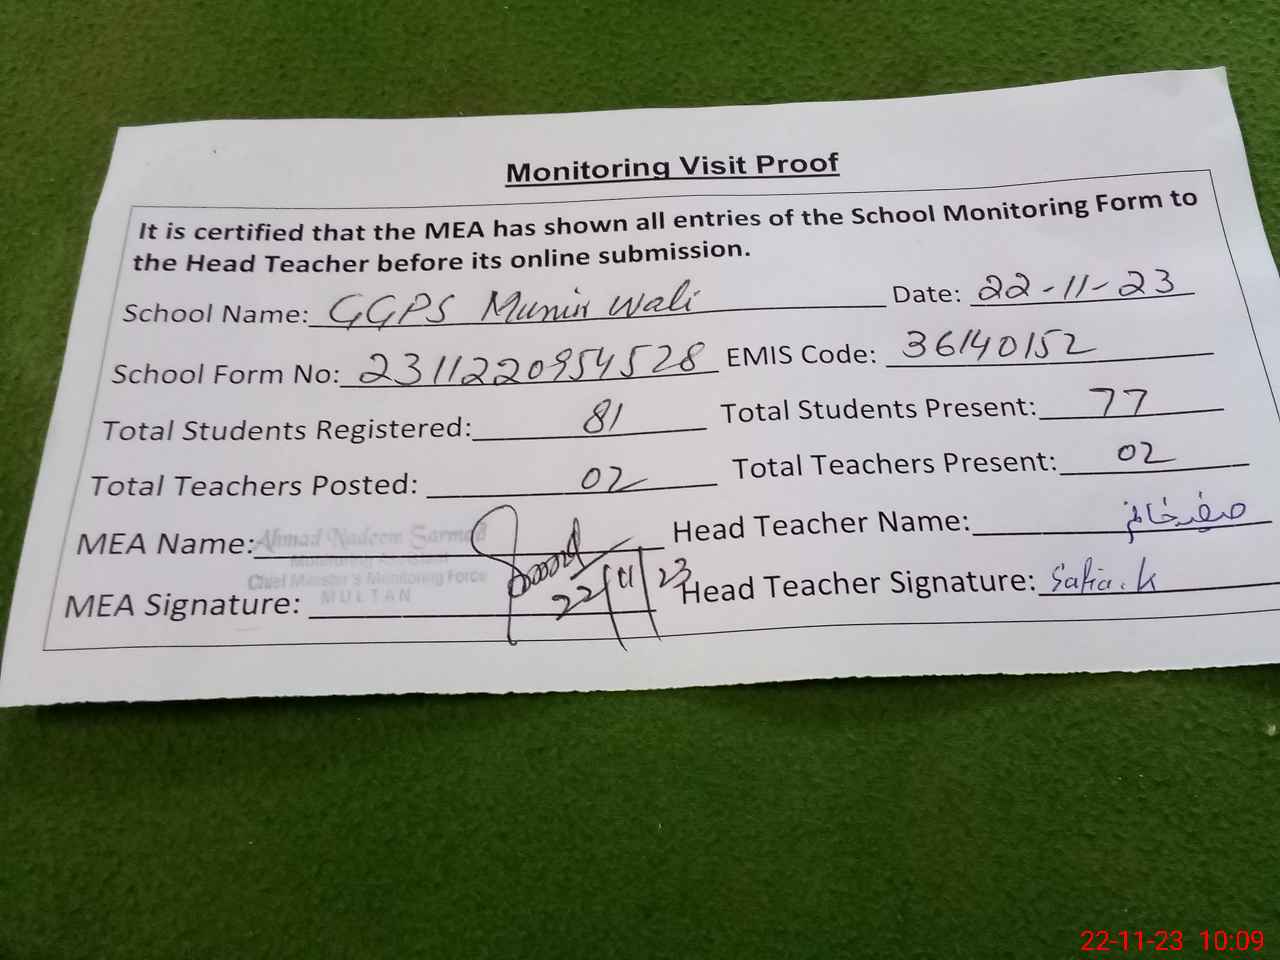 Monitoring Visit Proof
It is certified that the MEA has shown all entries of the School Monitoring Form to
the Head Teacher before its online submission.
School Name: GGPS Munir Wali Date: 22-11-23
School Form No: 2311220954528 EMIS Code: 36140152
Total Students Registered: 81 Total Students Present: 77
Total Teachers Posted: 02 Total Teachers Present: 02
MEA Name: Ahmad Nadeem Sarmad Head Teacher Name:
Chief Minister's Monitoring Force
MULTAN
MEA Signature: 22/11/23 Head Teacher Signature: Safia.k
22-11-23 10:09